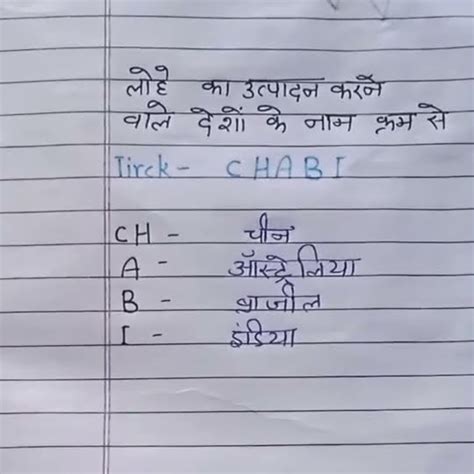 लोहे का उत्पादन करने
वाले देशों के नाम क्रम से
Tirck - CHABI
CH - चीन
A - ऑस्ट्रेलिया
B - ब्राजील
I - इंडिया